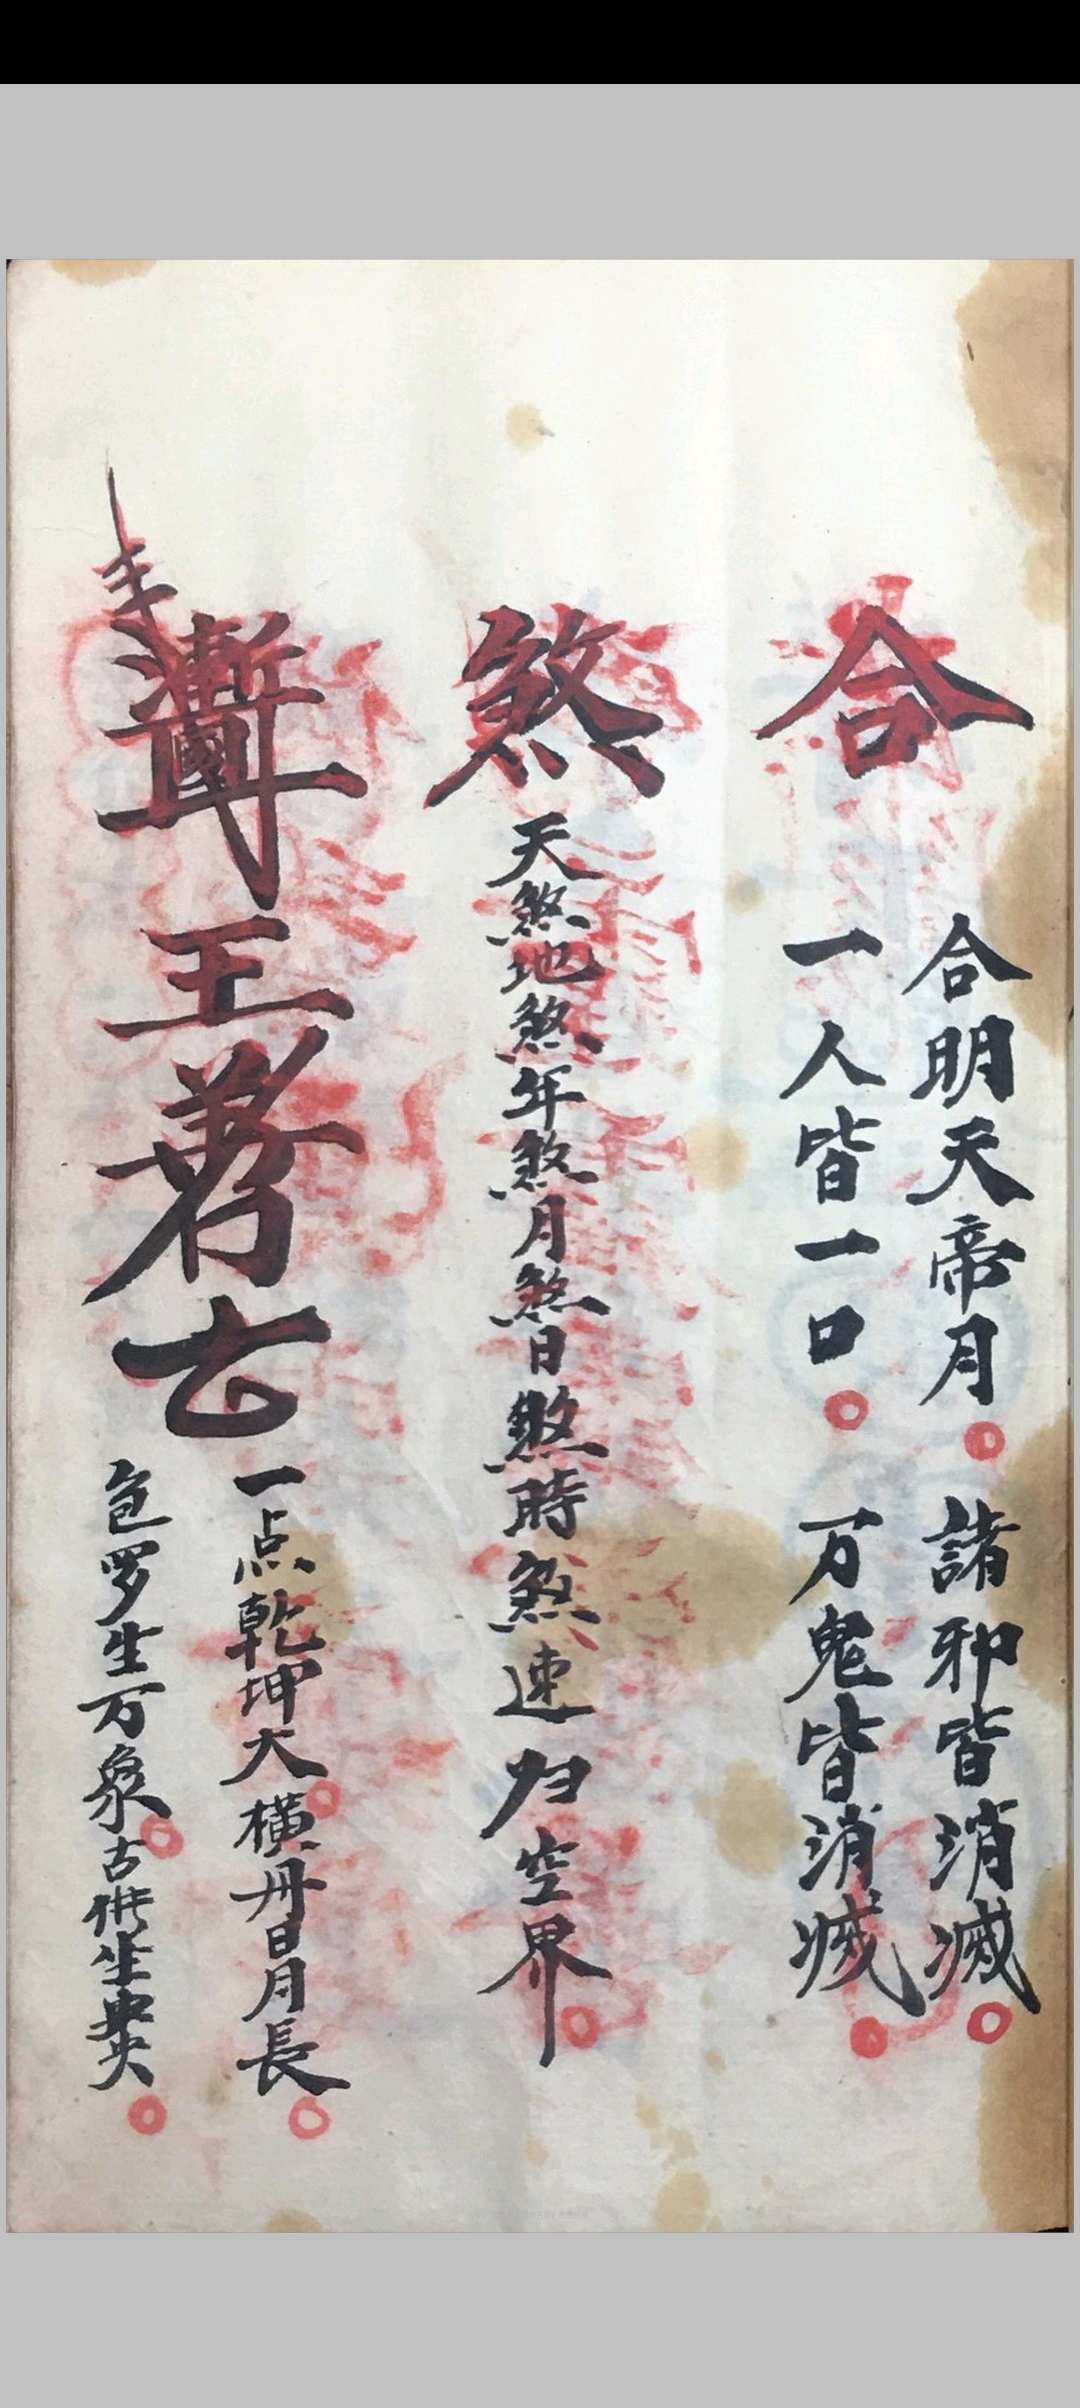 合
合明天帝月 諸邪皆消滅
一人皆一口 万鬼皆消滅
煞
天煞地煞年煞月煞日煞時煞速归空界
王
一点乾坤大橫丹日月長
罗生万象古佛生